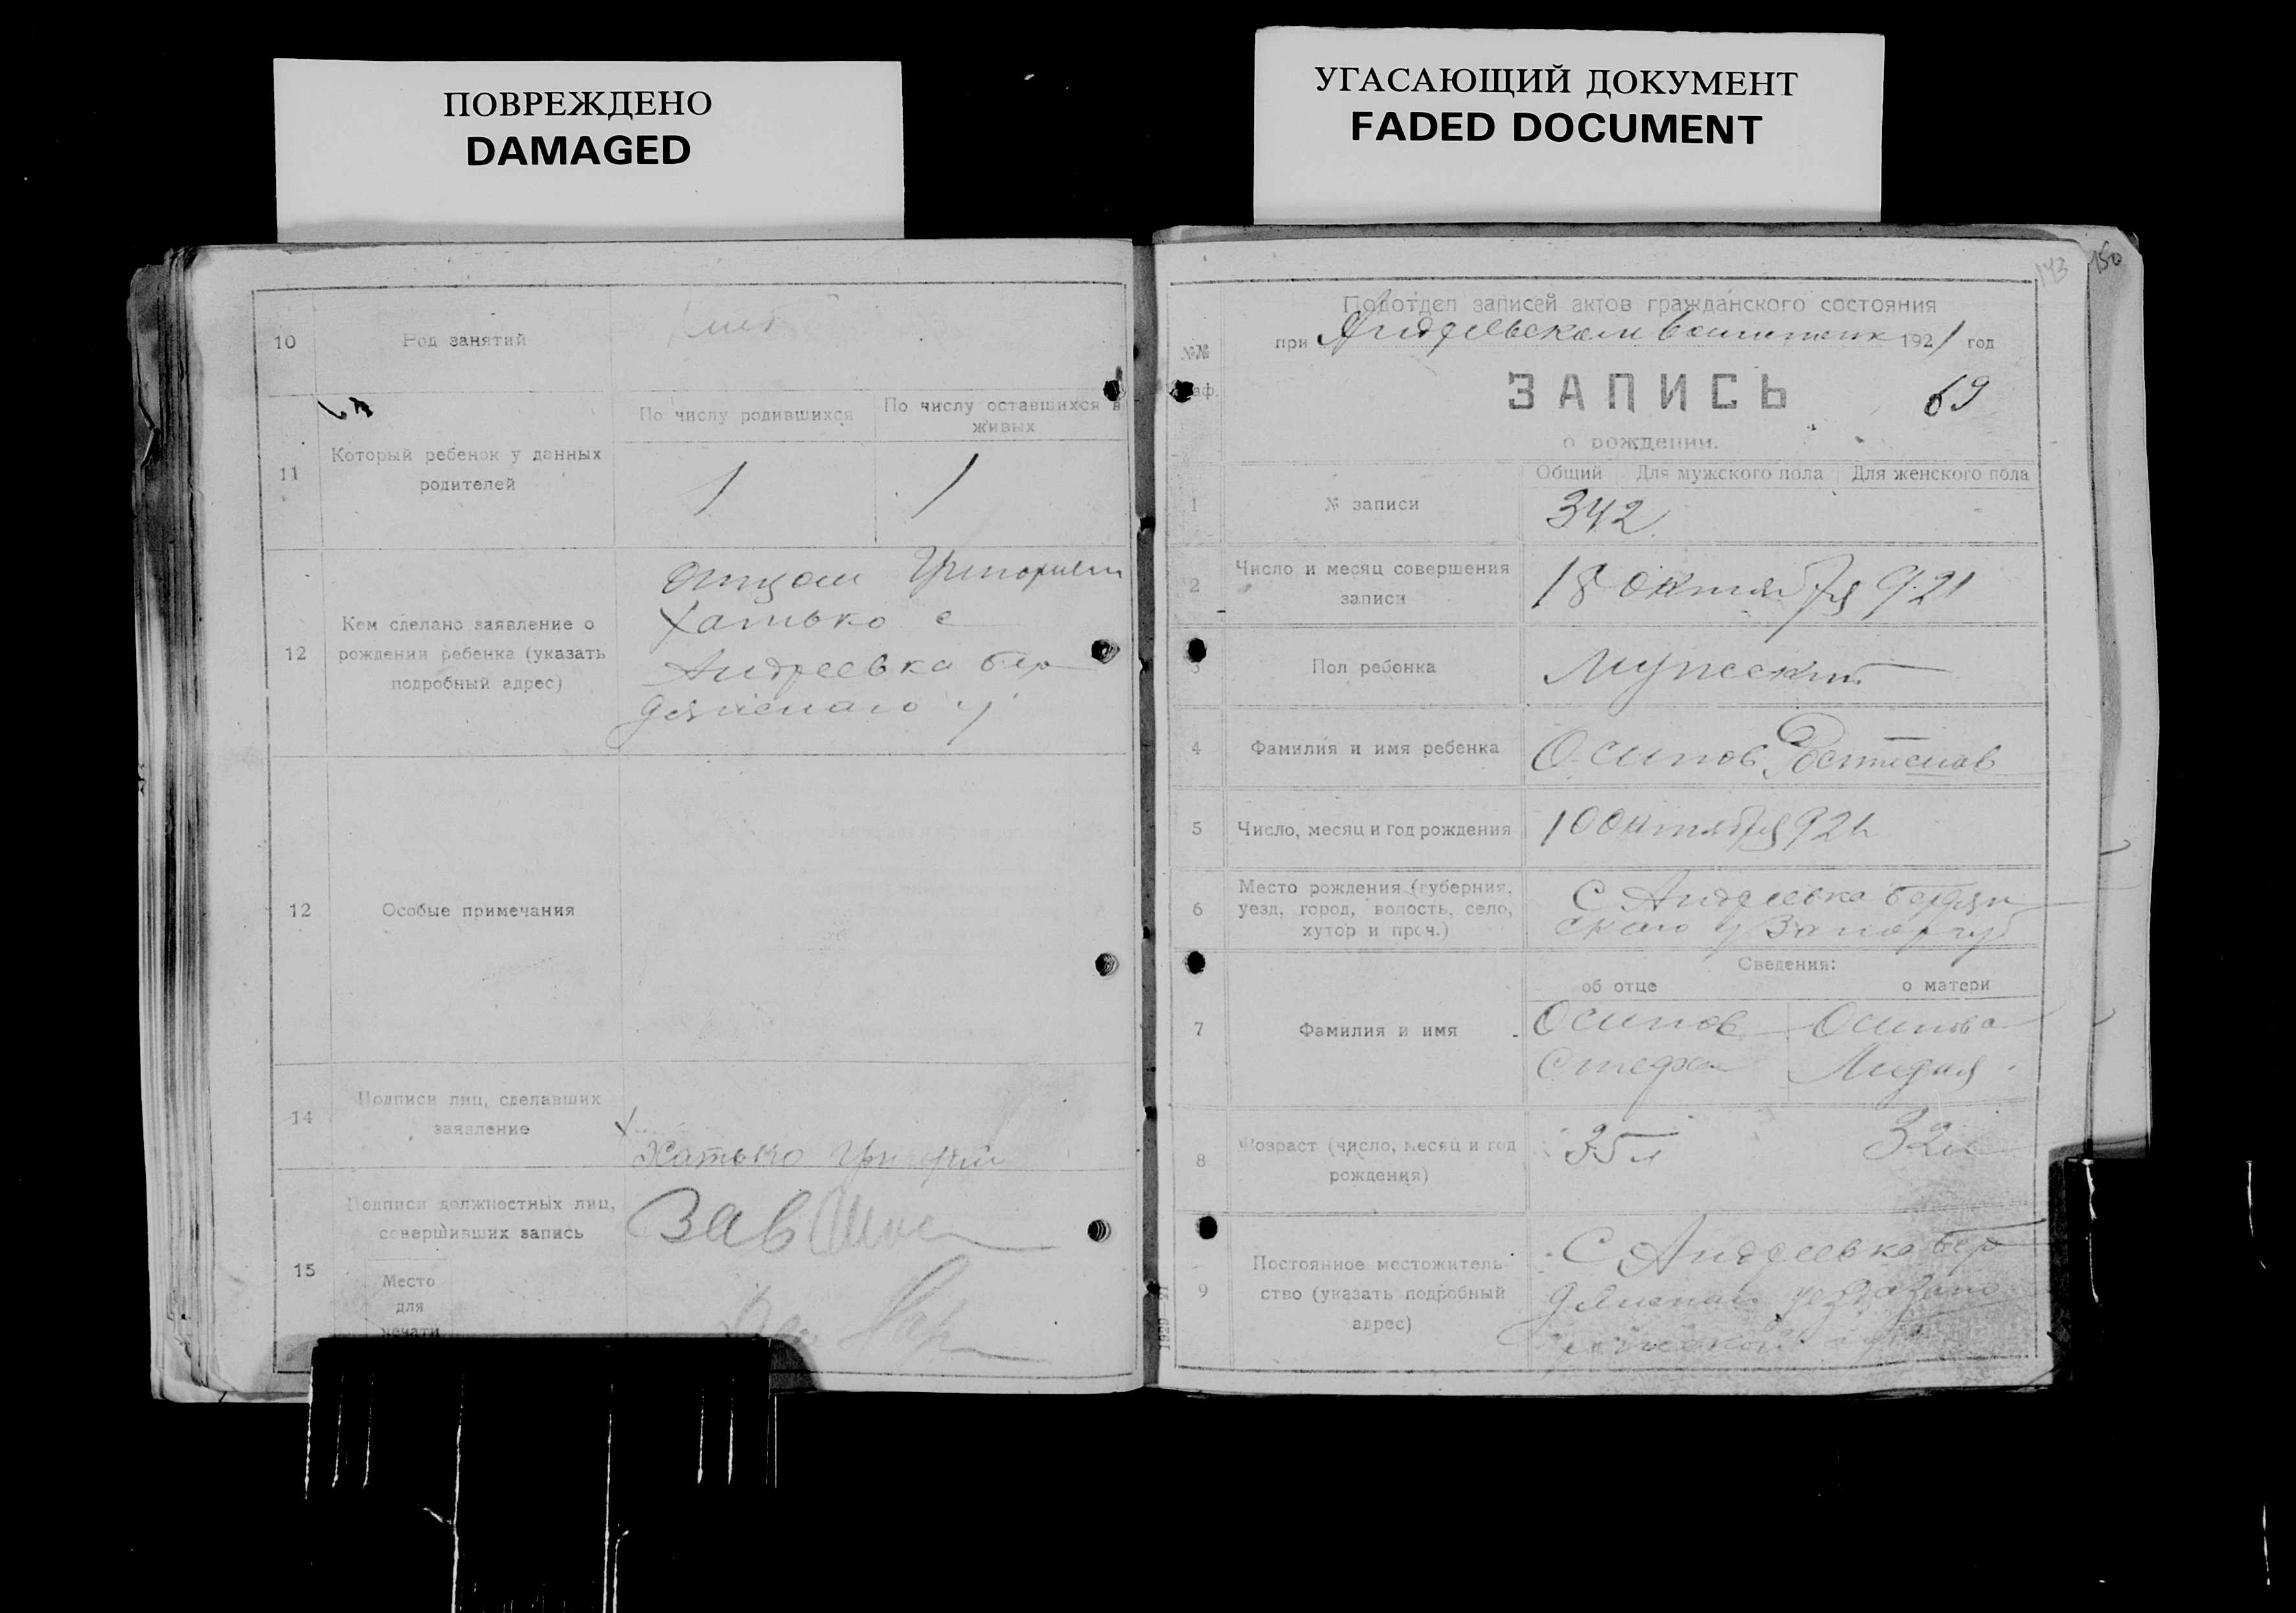 ПОВРЕЖДЕНО
DAMAGED
10
Род занятий
11
Который ребенок у данных
родителей
По числу родившихся
По числу оставшихся в
живых
1
1
12
Кем сделано заявление о
рождении ребенка (указать
подробный адрес)
отцом Григорием
Хатько с
Андреевка Бер
дянского у
12
Особые примечания
14
Подписи лиц, сделавших
заявление
Хатько Григорий
15
Подписи должностных лиц,
совершивших запись
Место
для
печати
Зав
УГАСАЮЩИЙ ДОКУМЕНТ
FADED DOCUMENT
143
150
Подотдел записей актов гражданского состояния
№№
аф.
при Андреевском 1921 год
ЗАПИСЬ
69
о рождении.
Общий
Для мужского пола
Для женского пола
1
№ записи
342
2
Число и месяц совершения
записи
18 октября 921
3
Пол ребенка
Мужской
4
Фамилия и имя ребенка
Осипов Ростислав
5
Число, месяц и год рождения
10 октября 921
6
Место рождения (губерния,
уезд, город, волость, село,
хутор и проч.)
С Андреевка Бердян
ского у Запор губ
Сведения:
об отце
о матери
7
Фамилия и имя
Осипов
Осипова
Стефан
Лидия
8
Возраст (число, месяц и год
рождения)
35 л
32 л
9
Постоянное местожитель
ство (указать подробный
адрес)
С Андреевка Бер
дянского уезда Запо